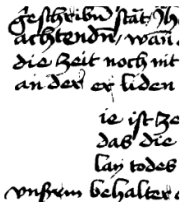 geschribn̄ stāt Jh
achtendn̄ wan̄
die Zeit noch nit
an der er liden
ie ist Ze
das die
lay todes
vnsrm behalter